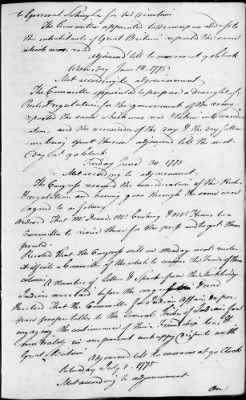 to General Schuyler for his direction
The Committee appointed to prepare an address to
the inhabitants of Great Britain reported the same
which was read
Adjourned till to morrow at 9 oClock
Wednesday June 28, 1775
Met according to adjournment
The Committee appointed to prepare a draught of
Rules & regulations for the government of the army
reported the same which was read & taken into consider-
ation, and the remainder of the day & the day follow-
ing being spent thereon adjourned till the next
day at 9 oClock
Friday June 30 1775
Met according to adjournment.
The Congress resumed the consideration of the Rules &
regulations and having gone through the same were
agreed to as follows
Ordered That Mr Deane Mr Cushing & Mr Hewes be a
Committee to revise them for the press and get them
printed.
Resolved That the Congress will on Monday next under-
take a Committee of the whole to consider the Trade of these
colonies.
A Number of letters & speeches from the Stockbridge
Indians were laid before the congress & read
Resolved That the Committee for Indian Affairs do pre-
pare proper talks to the several Tribes of Indians for
engaging the continuance of their Friendship to us &
neutrality in our present unhappy dispute with
Great Britain
Adjourned till to morrow at 9 oClock
Saturday July 1, 1775
Met according to adjournment
On